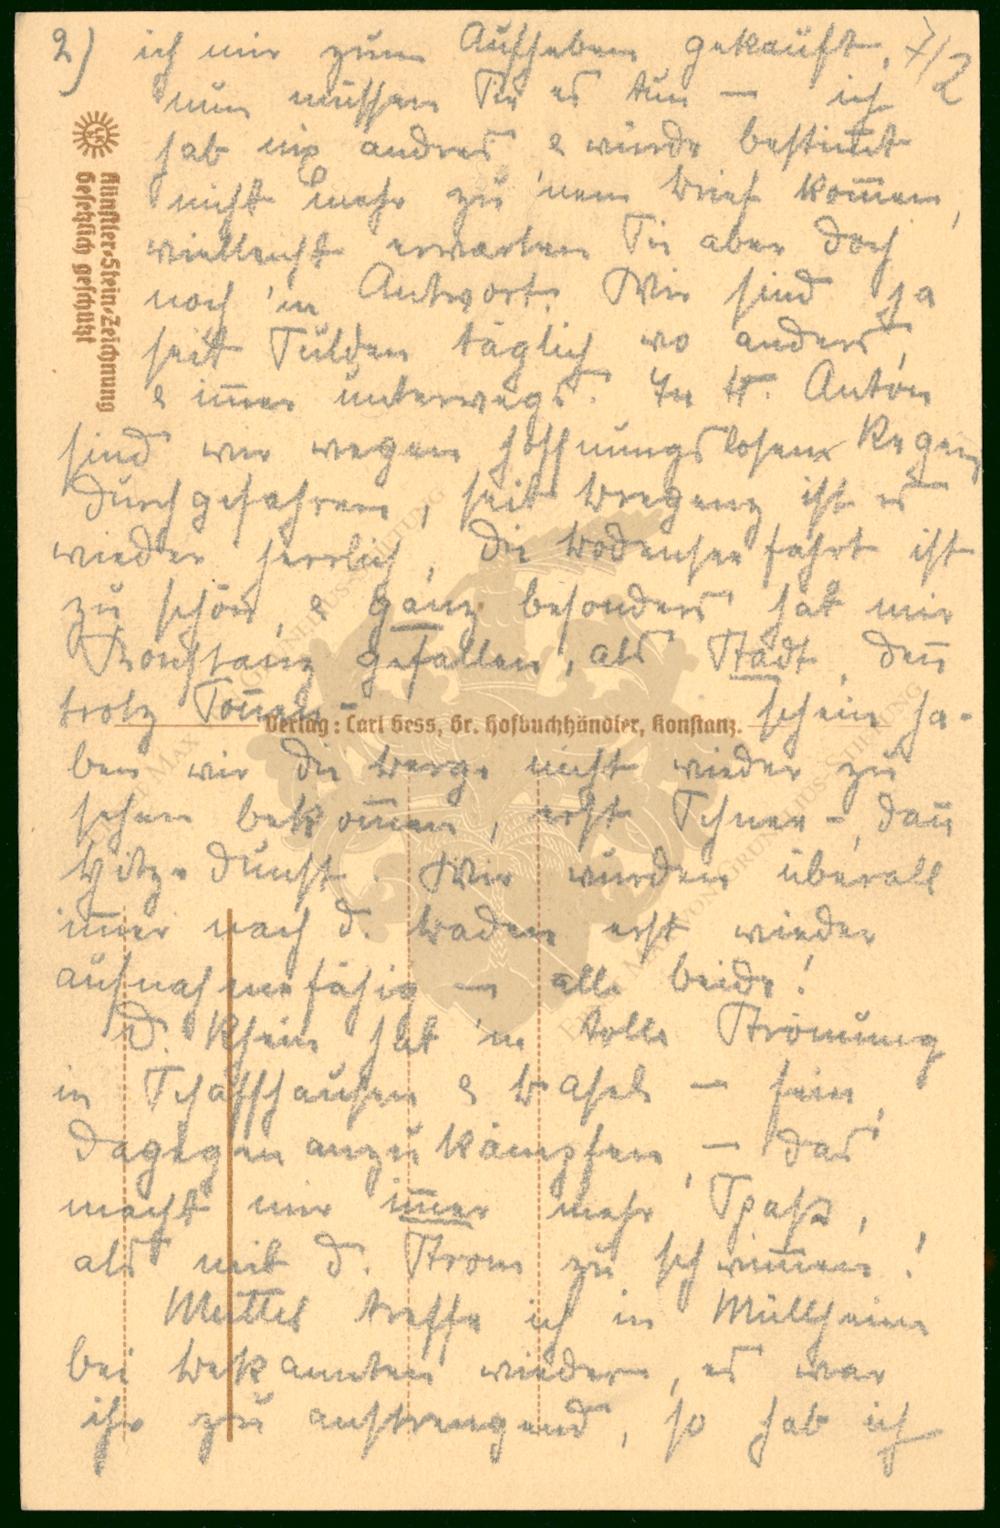 2) ich mir zum Aufheben gekauft, 7/2
nun müssen Sie es tun — ich
hab nix andres & würde bestim̅t
nicht mehr zu 'nem Brief kom̅en,
vielleicht erwarten Sie aber doch
noch 'n Antwort. Wir sind ja
seit Sulden täglich wo anders,
& im̅er unterwegs. In St. Anton
sind wir wegen hoffnungslosem Regen
durchgefahren, seit Bregenz ist es
wieder herrlich, die Bodenseefahrt ist
zu schön, & ganz besonders hat mir
Konstanz gefallen, als Stadt, den̅
trotz Son̅en-schein ha-
ben wir die Berge nicht wieder zu
sehen bekom̅en, erst Schnee-, dan̅
Hitze Dunst. Wir wurden überall
im̅er nach d. Baden erst wieder
aufnahmefähig — alle beide!
D. Rhein hat 'ne tolle Strömung
in Schaffhausen & Basel — fein,
dagegen anzukämpfen, — das
macht mir im̅er mehr Spaß,
als mit d. Strom zu schwim̅en!
Muttel treffe ich in Müllheim
bei Bekannten wieder, es war
ihr zu anstrengend, so hab ich
Künstler-Stein-Zeichnung
Gesetzlich geschützt
Verlag: Carl Gess, Gr. Hofbuchhändler, Konstanz.